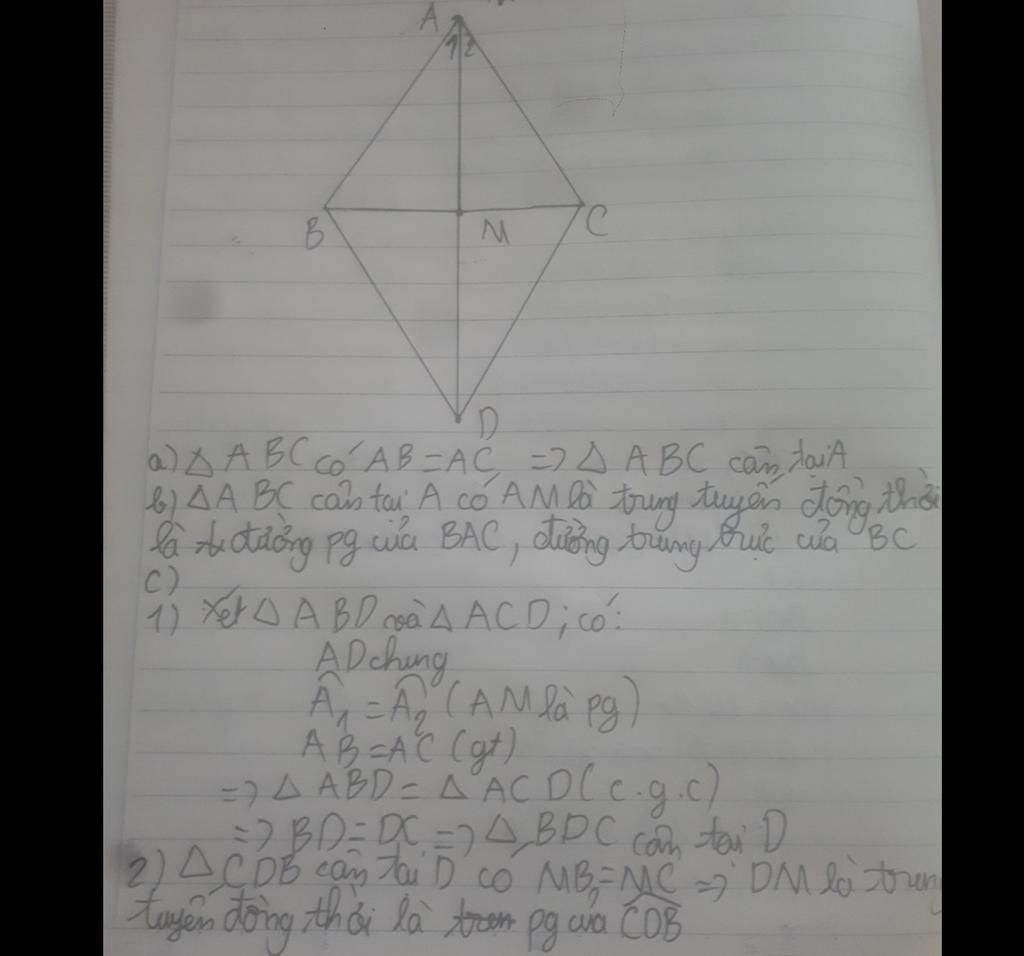 A
1 2
B M C
D
a) △ ABC có AB = AC => △ ABC cân tại A
b) △ ABC cân tại A có AM là trung tuyến đồng thời
là đường pg của BAC, đường trung trực của BC
C)
1) Xét △ ABD và △ ACD; có:
AD chung
Â₁ = Â₂ (AM là pg)
AB = AC (gt)
=> △ ABD = △ ACD (c.g.c)
=> BD = DC => △ BDC cân tại D
2) △ CDB cân tại D có MB = MC => DM là trung
tuyến đồng thời là pg của CDB